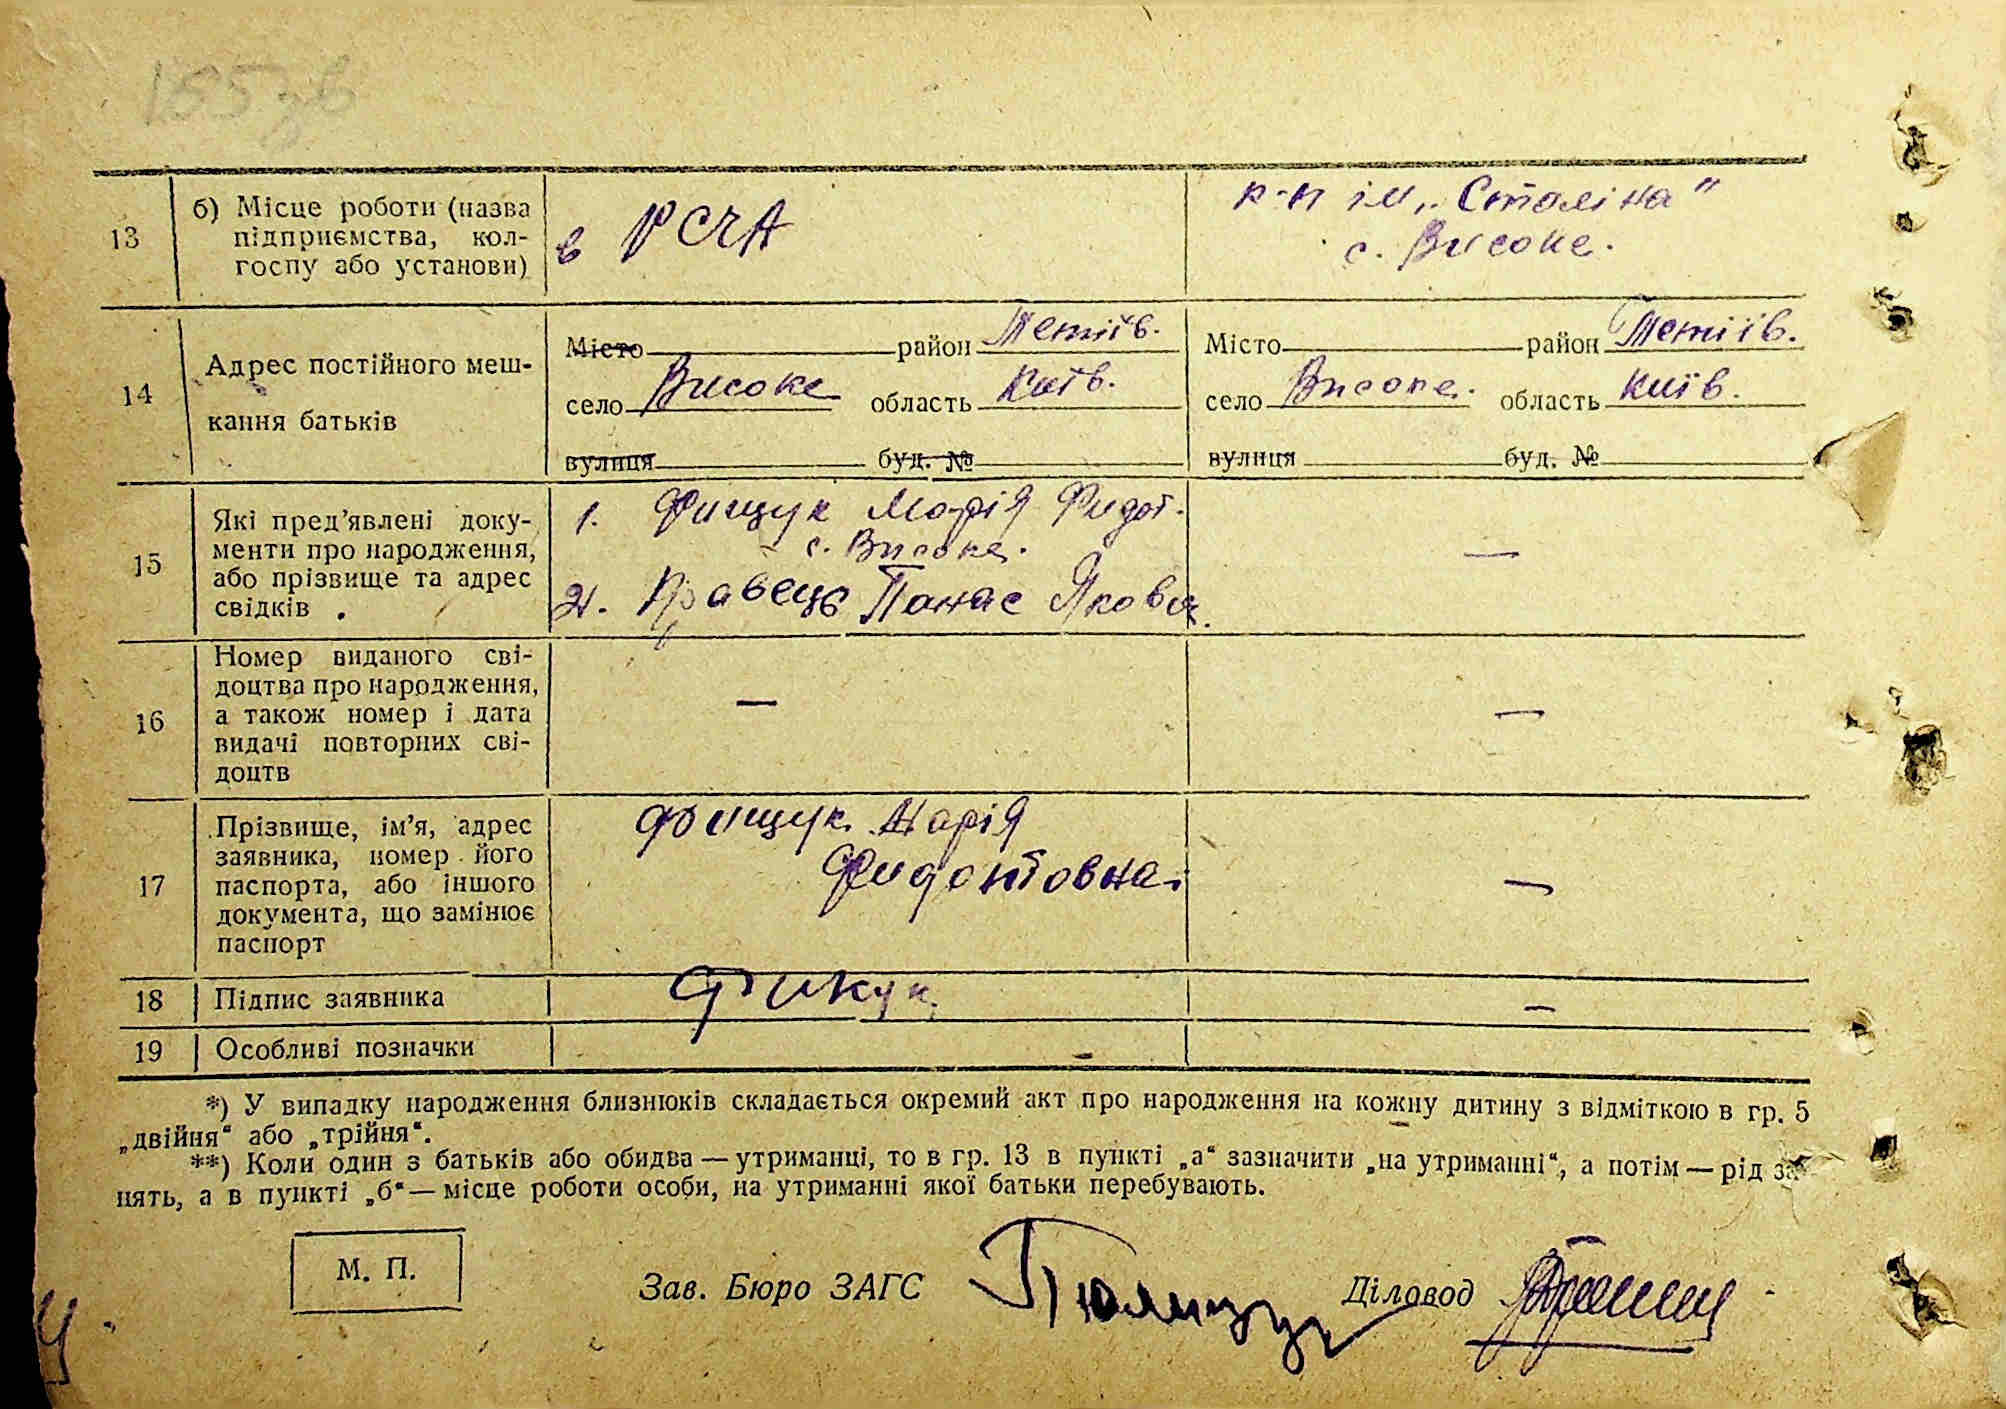 185 зв
13
б) Місце роботи (назва
підприємства, кол-
госпу або установи)
в РСЧА
к-п ім „Сталіна"
с. Високе.
14
Адрес постійного меш-
кання батьків
Місто район Тетіїв.
село Високе область Київ.
вулиця буд. №
Місто район Тетіїв.
село Високе. область Київ.
вулиця буд. №
15
Які пред'явлені доку-
менти про народження,
або прізвище та адрес
свідків .
1. Фищук Марія Фидот.
с. Високе.
2. Кравець Панас Яков
—
16
Номер виданого сві-
доцтва про народження,
а також номер і дата
видачі повторних сві-
доцтв
—
—
17
Прізвище, ім'я, адрес
заявника, номер його
паспорта, або іншого
документа, що замінює
паспорт
Фищук Марія
Фидонтовна.
—
18
Підпис заявника
—
19
Особливі позначки
*) У випадку народження близнюків складається окремий акт про народження на кожну дитину з відміткою в гр. 5
„двійня“ або „трійня“.
**) Коли один з батьків або обидва — утриманці, то в гр. 13 в пункті „а“ зазначити „на утриманні“, а потім — рід за-
нять, а в пункті „б“ — місце роботи особи, на утриманні якої батьки перебувають.
М. П.
Зав. Бюро ЗАГС
Діловод